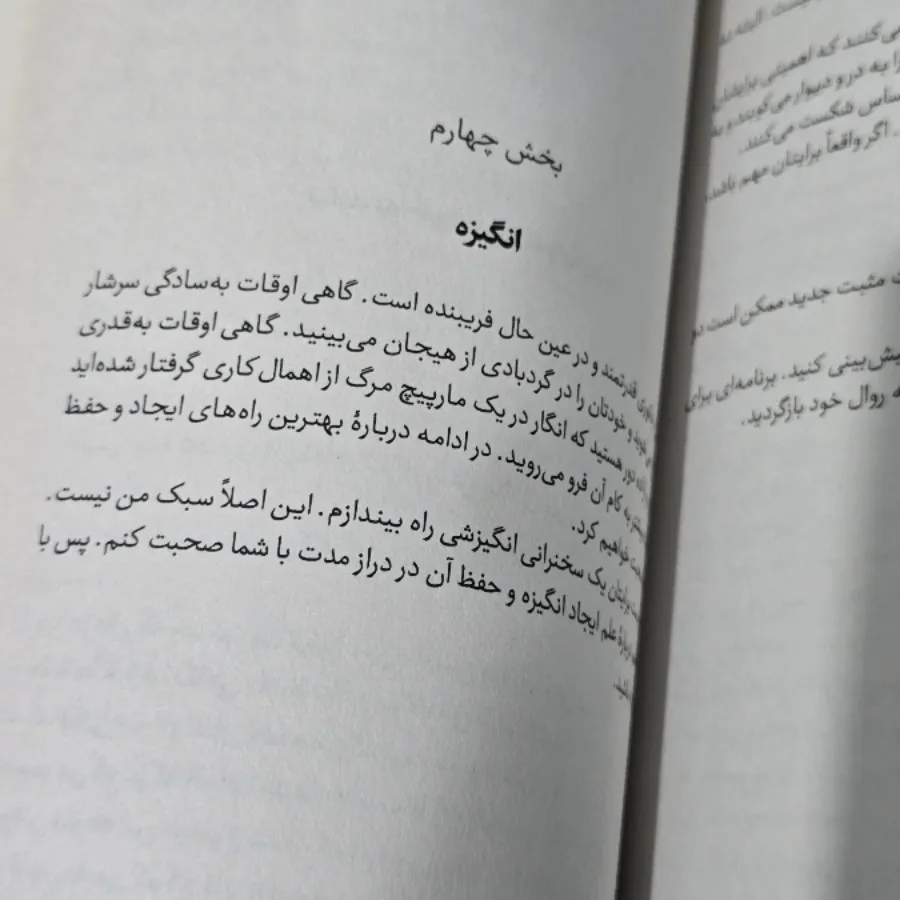 بخش چهارم
انگیزه
قدرتمند و در عین حال فریبنده است. گاهی اوقات به‌سادگی سرشار
و خودتان را در گردبادی از هیجان می‌بینید. گاهی اوقات به‌قدری
دور هستید که انگار در یک مارپیچ مرگ از اهمال‌کاری گرفتار شده‌اید
به کام آن فرو می‌روید. در ادامه دربارهٔ بهترین راه‌های ایجاد و حفظ
خواهیم کرد.
برایتان یک سخنرانی انگیزشی راه بیندازم. این اصلاً سبک من نیست.
دربارهٔ علم ایجاد انگیزه و حفظ آن در دراز مدت با شما صحبت کنم. پس با
البته
می‌کنند که اهمیتی برایشان
را به در و دیوار می‌کوبند و به
شکست می‌کنند.
اگر واقعاً برایتان مهم باشد،
مثبت جدید ممکن است در
پیش‌بینی کنید. برنامه‌ای برای
روال خود بازگردید.